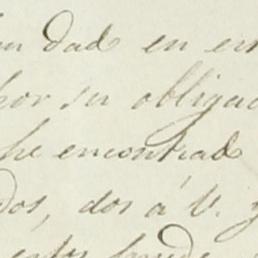 dad en
por su obligac
he encontrad
dos, dos á V. y